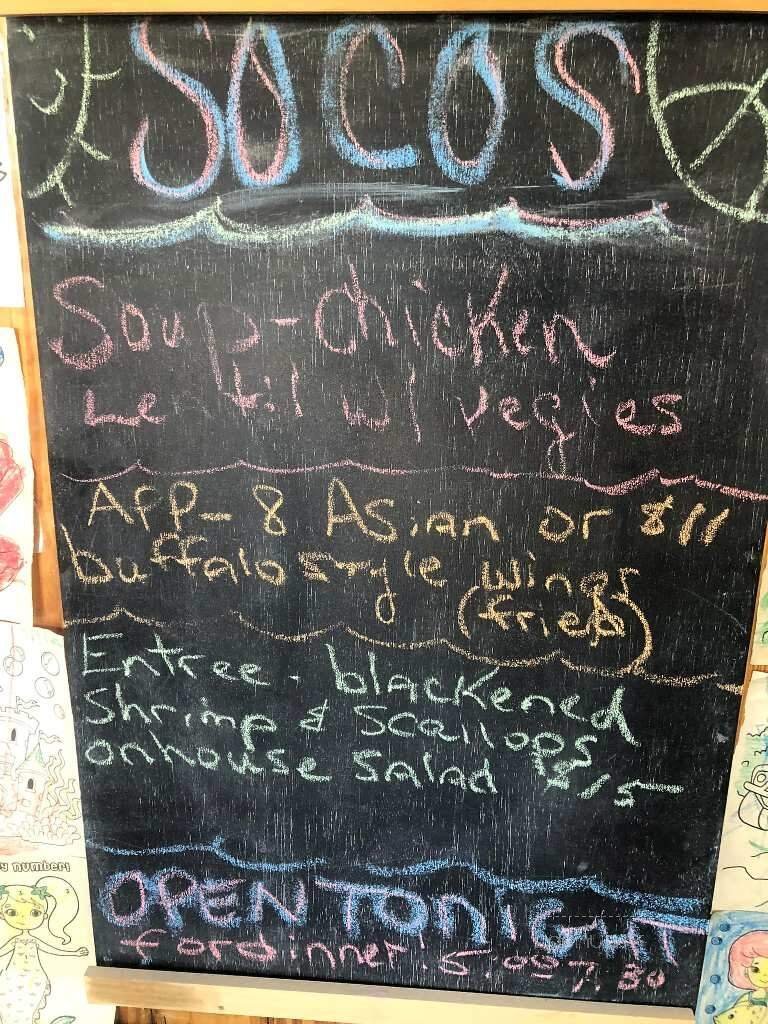 SOCOS
Soup-chicken
Le til w/ vegies
App- 8 Asian or $11
buffalo style wings
(fried)
Entree - blackened
shrimp & scallops
on house salad $15-
OPEN TONIGHT
for dinner! 5:00-7:30
y NUMBER!